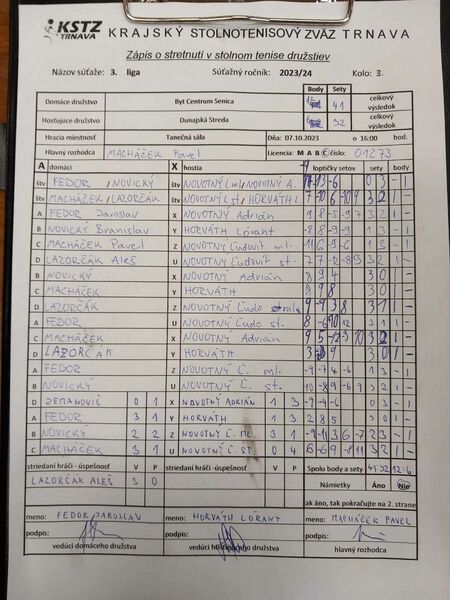 KSTZ TRNAVA KRAJSKÝ STOLNOTENISOVÝ ZVÄZ TRNAVA
Zápis o stretnutí v stolnom tenise družstiev
Názov súťaže: 3. liga Súťažný ročník: 2023/24 Kolo: 3.
Body Sety
Domáce družstvo Byt Centrum Senica 41 celkový výsledok
Hosťujúce družstvo Dunajská Streda 32 celkový výsledok
Hracia miestnosť Tanečná sála Dňa: 07.10.2023 o 16:00 hod.
Hlavný rozhodca MACHÁČEK Pavel Licencia: M A B C číslo: 01273
A domáci X hostia loptičky setov sety body
štv FEDOR / NOVICKÝ štv NOVOTNÝ Ľ. ml / NOVOTNÝ A. 0 3 - 1
štv MACHÁČEK / LAZORČÁK štv NOVOTNÝ st / HORVÁTH L. 3 2 1 -
A FEDOR Jaroslav X NOVOTNÝ Adrián 9 8 -5 -9 7 3 2 1 -
B NOVICKÝ Branislav Y HORVÁTH Lórant 1 3 - 1
C MACHÁČEK Pavel Z NOVOTNÝ Ľudovít ml. -11 6 -9 -6 1 3 - 1
D LAZORČÁK Aleš U NOVOTNÝ Ľudovít st. 3 2 1 -
B NOVICKÝ X NOVOTNÝ Adrián 8 9 4 3 0 1 -
C MACHÁČEK Y HORVÁTH 8 9 8 3 0 1 -
D LAZORČÁK Z NOVOTNÝ Ľudo 3 1 1 -
A FEDOR U NOVOTNÝ Ľudo st.
C MACHÁČEK X NOVOTNÝ Adrián 3 2 1 -
D LAZORČÁK Y HORVÁTH 3 0 1 -
A FEDOR Z NOVOTNÝ Ľ. ml. -9 -7 4 -6 1 3 - 1
B NOVICKÝ U NOVOTNÝ Ľ. st. 3 2 1 -
D ZEMANOVIČ 0 1 X NOVOTNÝ ADRIÁN 1 3 -9 -4 -6 0 3 - 1
A FEDOR 3 1 Y HORVÁTH 1 3 2 8 5 3 0 1 -
B NOVICKÝ 2 2 Z NOVOTNÝ Ľ. ML 3 1 -9 -11 3 6 -7 2 3 - 1
C MACHÁČEK 3 1 U NOVOTNÝ Ľ. ST. 0 4 3 2 1 -
striedaní hráči - úspešnosť V P striedaní hráči - úspešnosť V P Spolu body a sety 41:32 12:6
LAZORČÁK ALEŠ 3 0 Námietky Áno Nie
ak áno, tak pokračujte na 2. strane
meno: FEDOR JAROSLAV meno: HORVÁTH LÓRANT meno: MACHÁČEK PAVEL
podpis: podpis: podpis:
vedúci domáceho družstva vedúci hosťujúceho družstva hlavný rozhodca